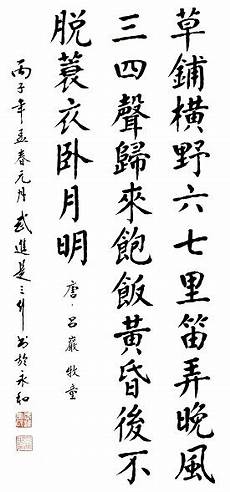 草鋪橫野六七里笛弄晚風
三四聲歸來飽飯黃昏後不
脫蓑衣臥月明
唐·呂巖牧童
丙子年孟春元月武進是之升書於永和